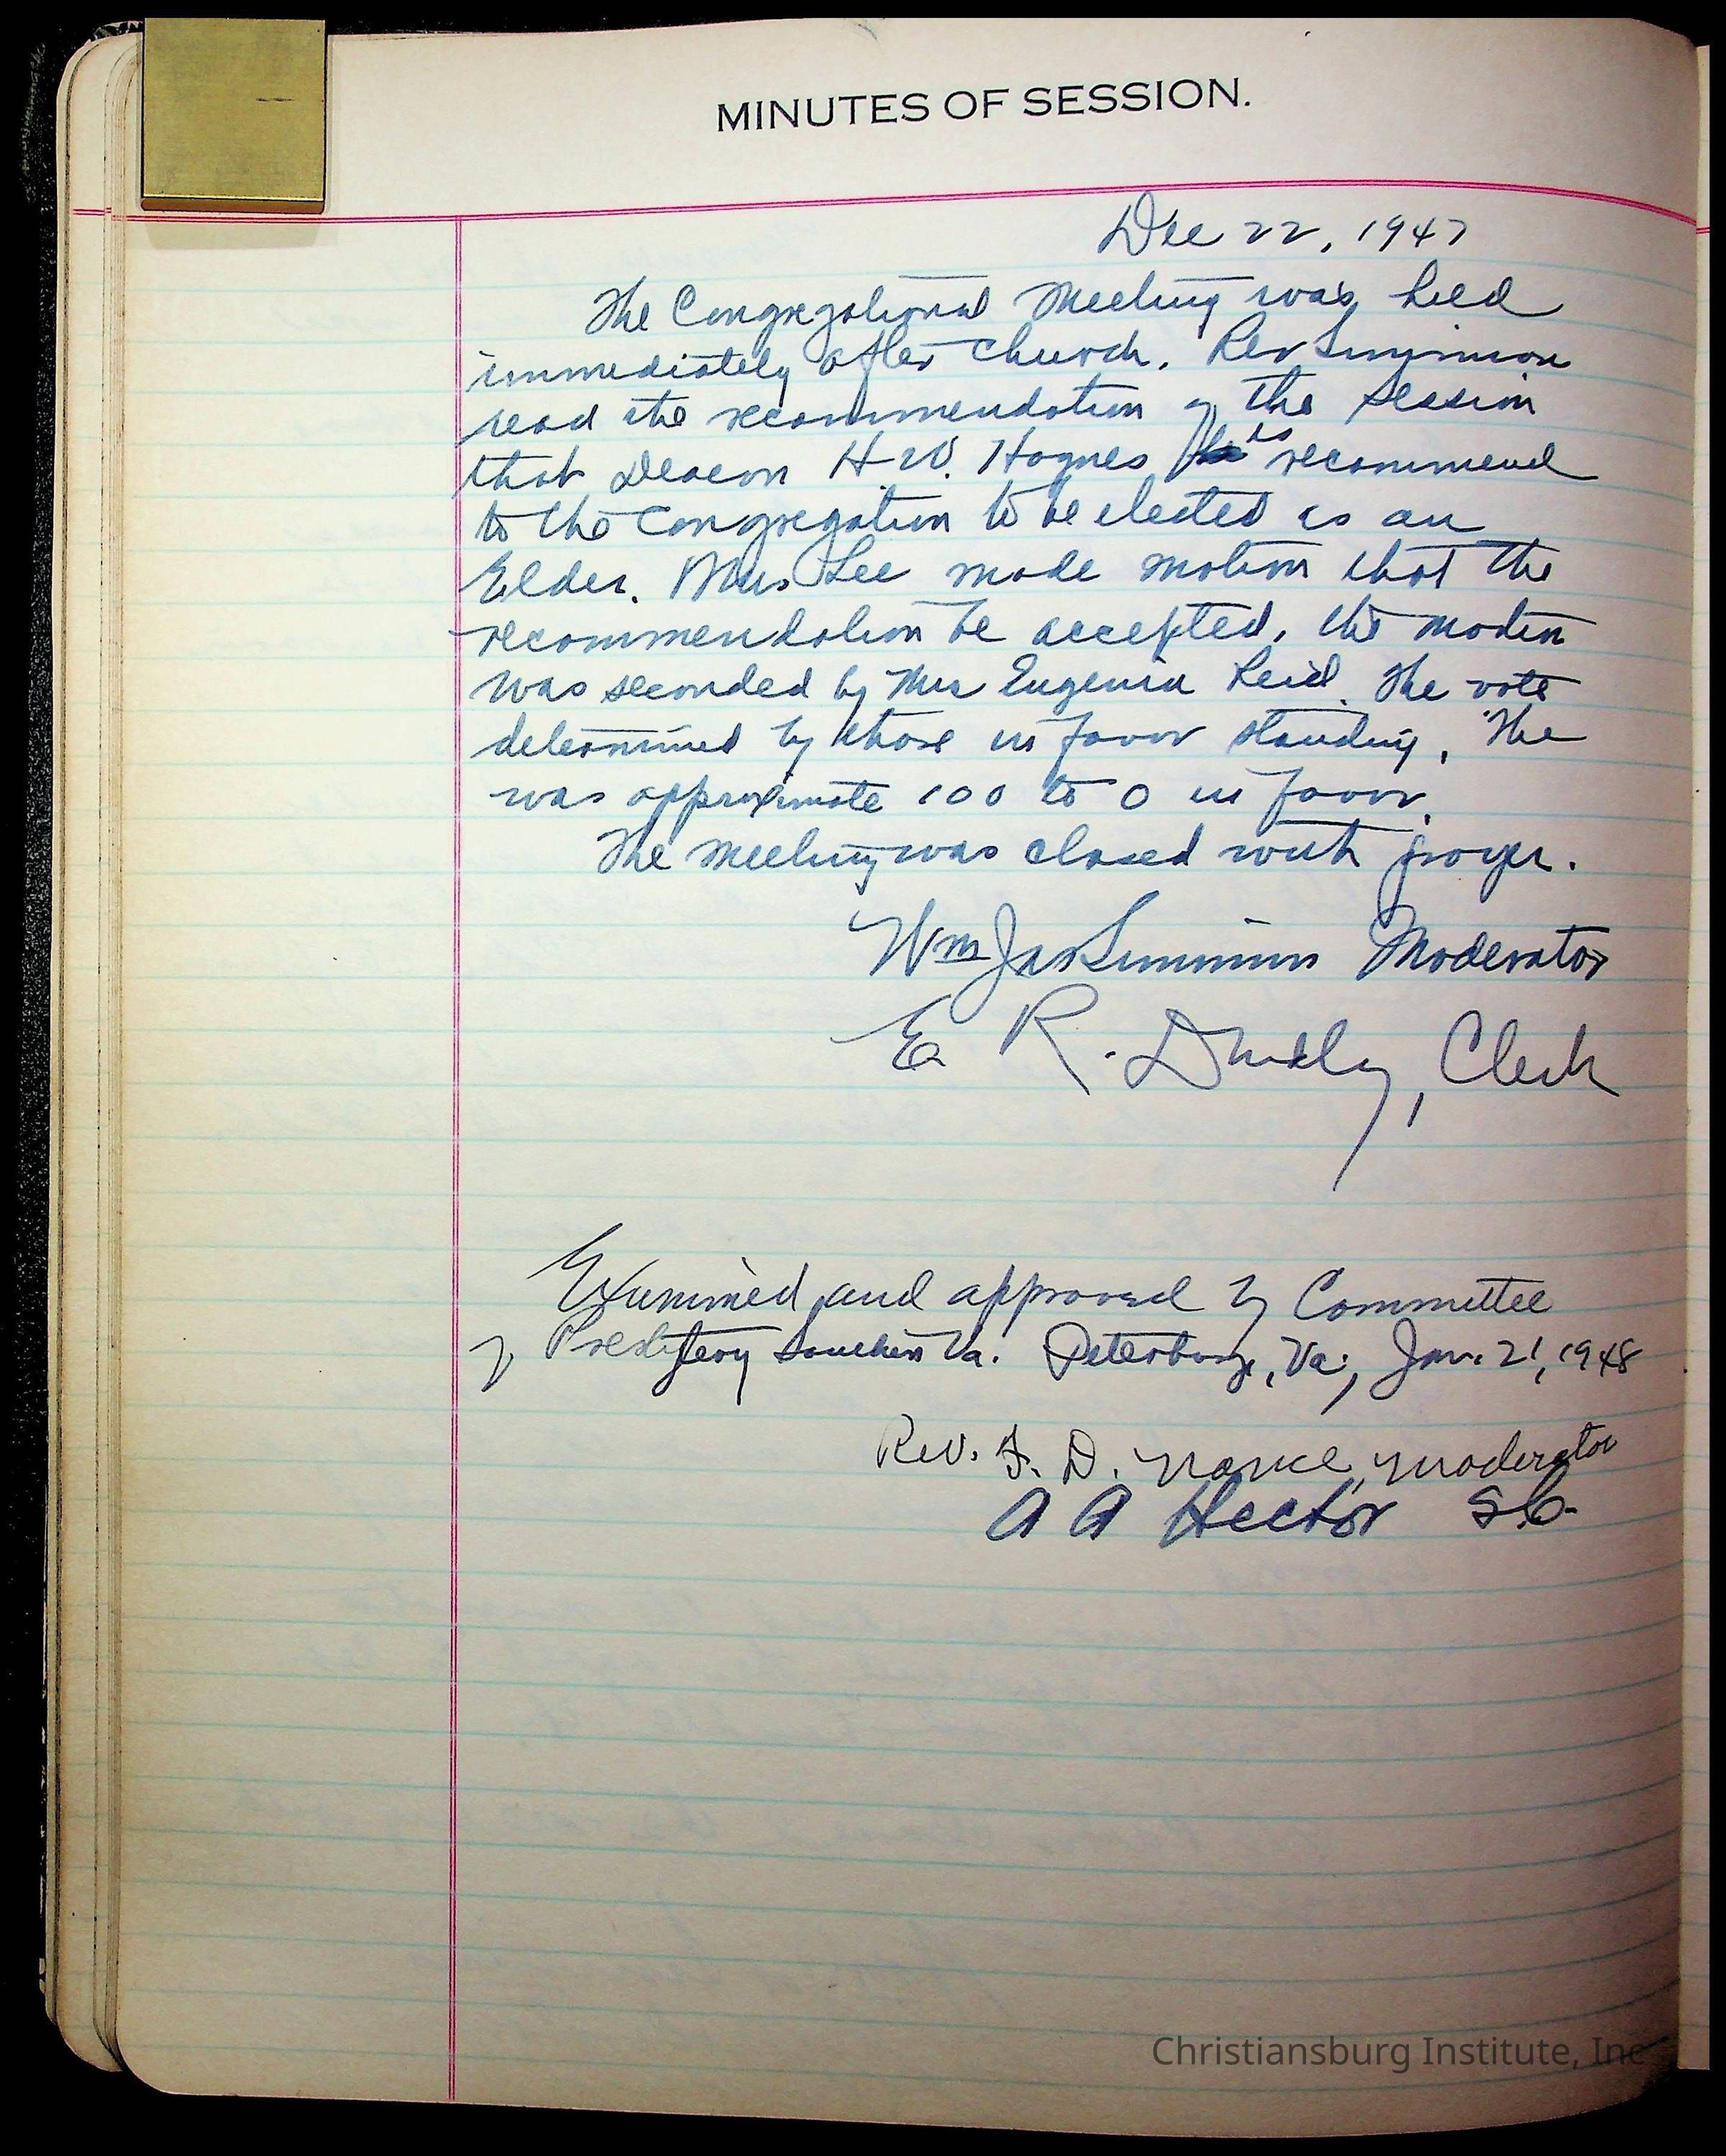 MINUTES OF SESSION.
Dec 22, 1947
The Congregational Meeting was held
immediately after church. Rev Simmions
read the recommendation of the session
that Deacon H. W. Hagnes is recommend
to the congregation to be elected as an
Elder. Mrs Lee made motion that the
recommendation be accepted, the motion
was seconded by Mrs Eugenia Reid. The vote
determined by those in favor standing. The
was approximate 100 to 0 in favor.
The meeting was closed with prayer.
Wm Jas Simmions Moderator
E R. Dudley, Clerk
Examined and approved by Committee
of Presbytery Southern Va. Petersburg, Va., Jan. 21, 1948
Rev. F. D. Nance, Moderator
A A Hector S.C.
Christiansburg Institute, Inc